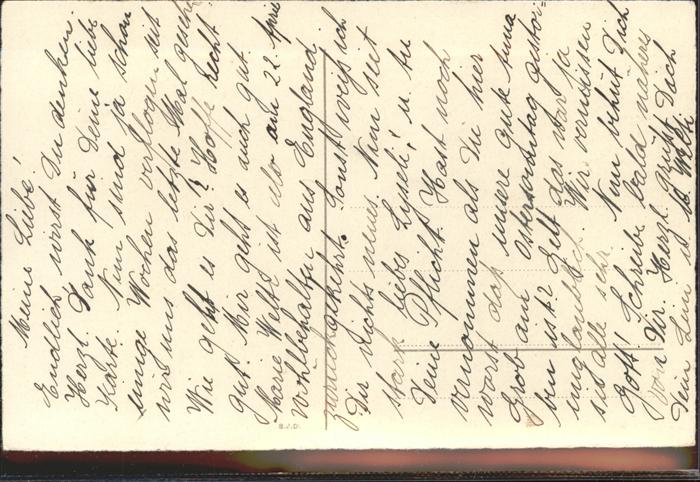 Meine Liebe!
Endlich wirst Du denken.
Herzl. Dank für Deine liebe
Karte. Nun sind ja schon
einige Wochen verflogen seit
wir uns das letzte Mal gesehn
Wie geht es Dir? Hoffe recht
gut. Mir geht es auch gut.
Marie ist am 22. April
Wohlbehalten aus England
zurückgekehrt. Sonst weiss ich
Dir nichts neues. Nun seit
stark liebes Lyseli! u. tu
Deine Pflicht. Hast noch
vernommen als Du hier
warst dass unsere gute
Grob am Ostersonntag gestor-
ben ist? Gelt das war ja
unglaublich. Wir vermissen
sie alle sehr. Nun behüt Dich
Gott! Schreibe bald näheres
von Dir. Herzl. grüsst Dich
Dein
B.V.D.